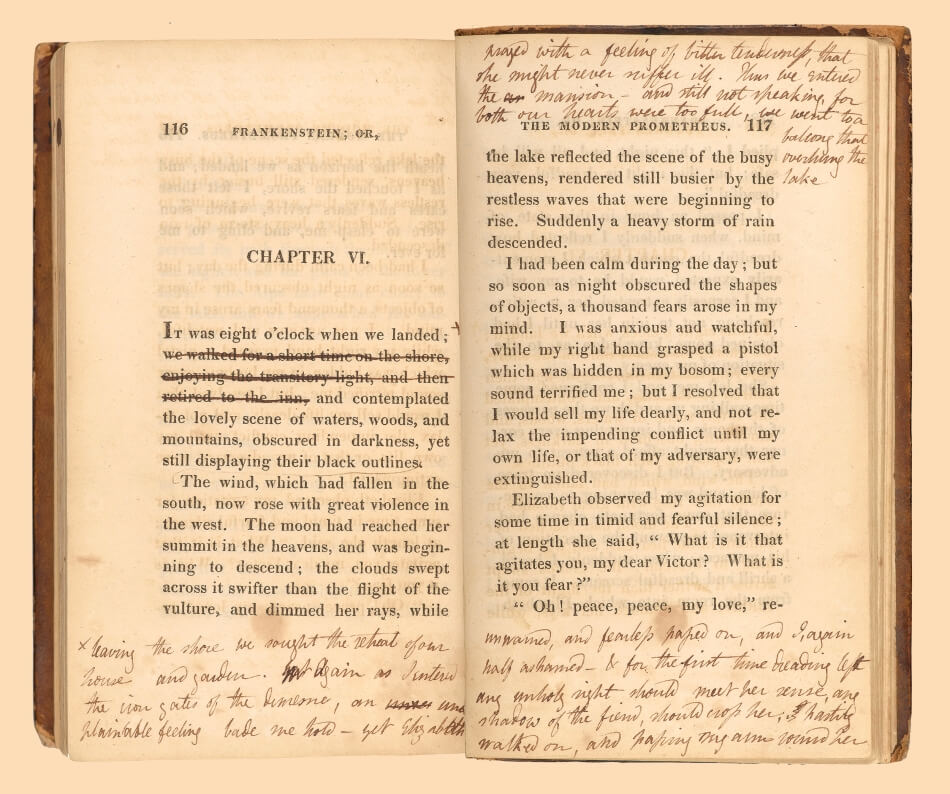 116
FRANKENSTEIN; OR,
CHAPTER VI.
IT was eight o'clock when we landed; +
we walked for a short time on the shore,
enjoying the transitory light, and then
retired to the inn, and contemplated
the lovely scene of waters, woods, and
mountains, obscured in darkness, yet
still displaying their black outlines.
The wind, which had fallen in the
south, now rose with great violence in
the west. The moon had reached her
summit in the heavens, and was begin-
ning to descend; the clouds swept
across it swifter than the flight of the
vulture, and dimmed her rays, while
× leaving the shore we sought the retreat of our
house and garden. Again as I entered
the iron gates of the demesne, an une
plainable feeling bade me hold – yet Elizabeth
prayed with a feeling of bitter tenderness, that
she might never suffer ill. Thus we entered
the mansion – and still not speaking, for
both our hearts were too full, we went to a
balcony that
overhung the
lake
THE MODERN PROMETHEUS. 117
the lake reflected the scene of the busy
heavens, rendered still busier by the
restless waves that were beginning to
rise. Suddenly a heavy storm of rain
descended.
I had been calm during the day; but
so soon as night obscured the shapes
of objects, a thousand fears arose in my
mind. I was anxious and watchful,
while my right hand grasped a pistol
which was hidden in my bosom; every
sound terrified me; but I resolved that
I would sell my life dearly, and not re-
lax the impending conflict until my
own life, or that of my adversary, were
extinguished.
Elizabeth observed my agitation for
some time in timid and fearful silence;
at length she said, “ What is it that
agitates you, my dear Victor? What is
it you fear?”
“ Oh! peace, peace, my love,” re-
unwarned, and fearless passed on, and I, again
half ashamed – & for the first time dreading lest
any unholy sight should meet her sense, any
shadow of the fiend, should cross her; I hastily
walked on, and passing my arm round her